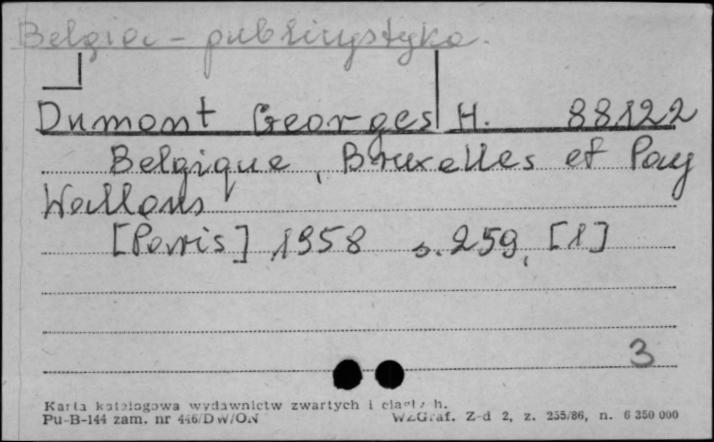 Belgia - publicystyka.
Dumont Georges H. 88.122
Belgique, Bruxelles et Pay
Wallons
[Paris], 1958 s. 259, [1]
3
Karta katalogowa wydawnictw zwartych i ciągłych.
Pu-B-144 zam. nr 446/DW/ON WZGraf. Z-d 2, z. 255/86, n. 6 350 000